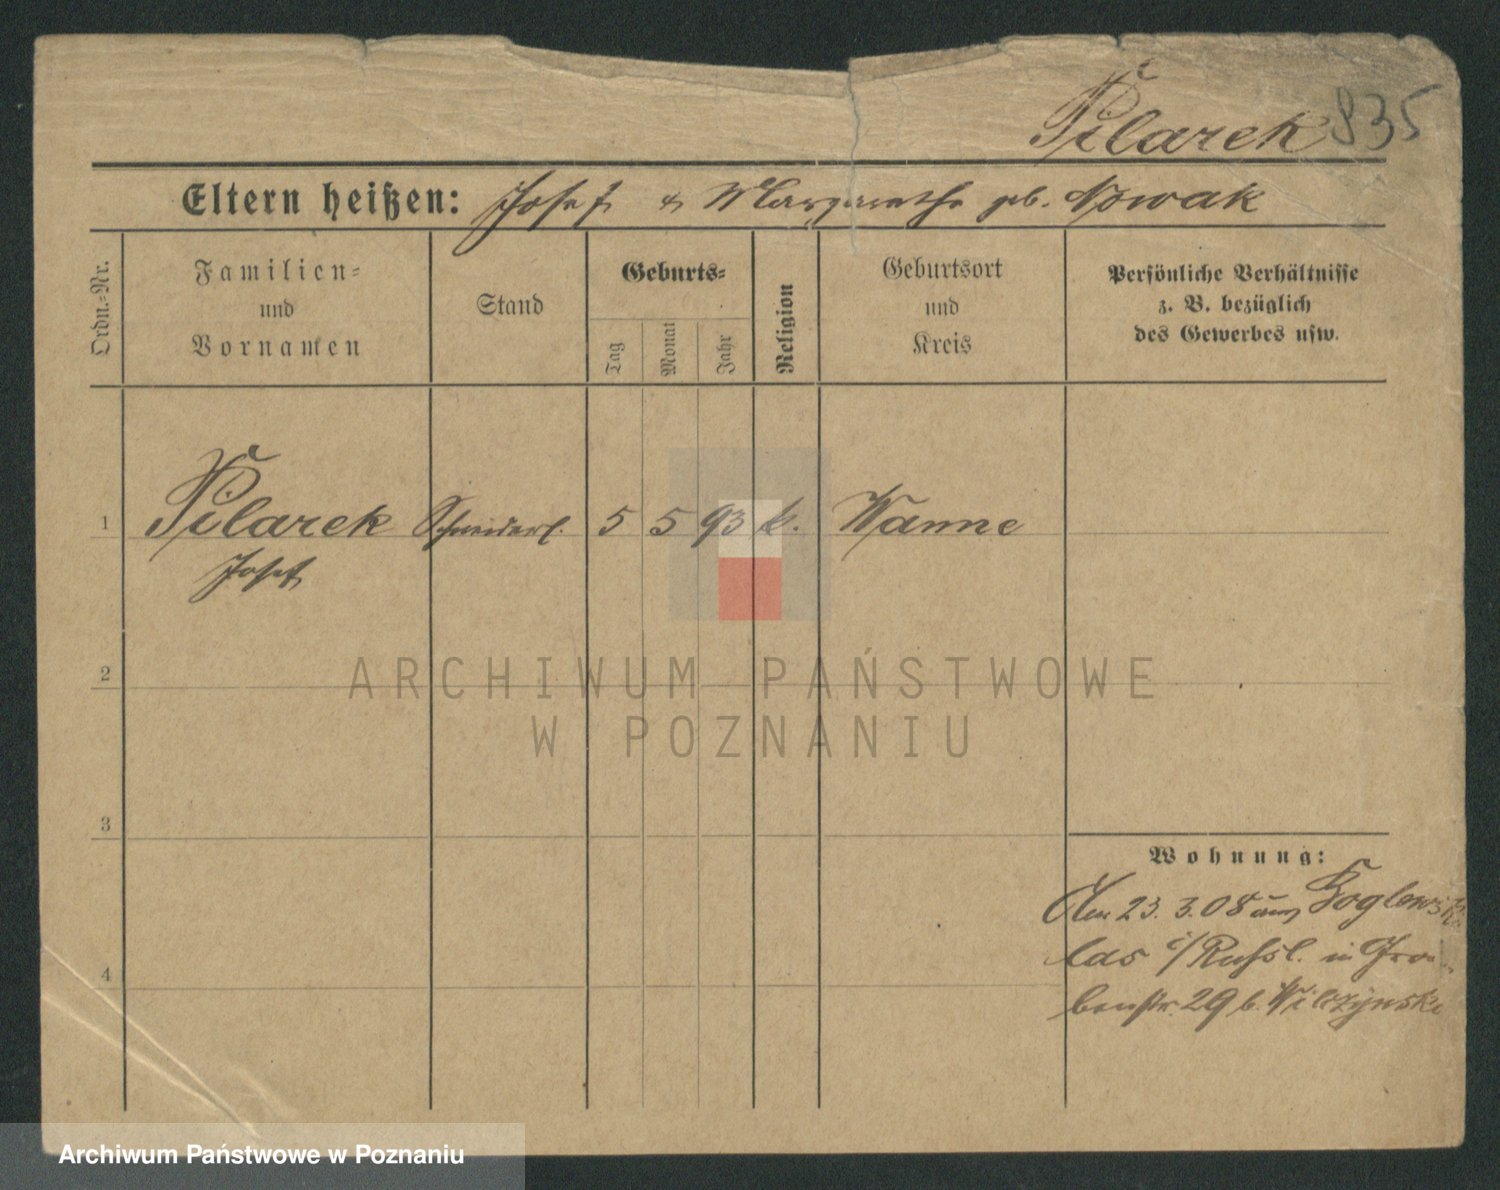 Pilarek 835
Eltern heißen: Josef & Margarethe geb. Nowak
Ordn.=Nr.
Familien=
und
Vornamen
Stand
Geburts=
Tag
Monat
Jahr
Religion
Geburtsort
und
Kreis
Persönliche Verhältnisse
z. B. bezüglich
des Gewerbes usw.
1 Pilarek Schneiderl. 5 5 93 k. Wanne
Josef
2
3
4
Wohnung:
Am 23. 3. 08 aus
las i/Russl. in Gra
benstr. 29 b. Wilczynski
ARCHIWUM PAŃSTWOWE
W POZNANIU
Archiwum Państwowe w Poznaniu